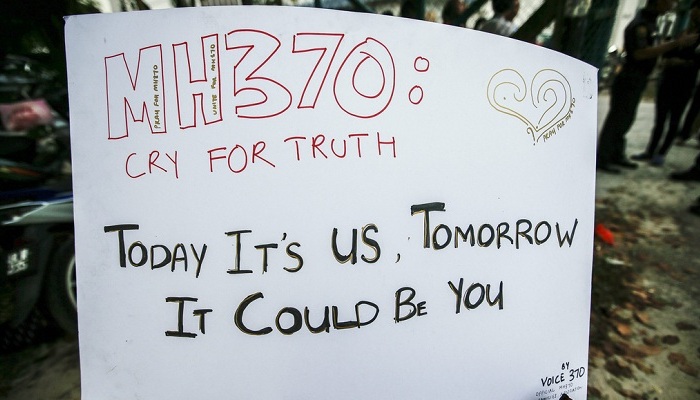 MH370:
PRAY FOR MH370
UNITE FOR MH370
PRAY FOR MH370
CRY FOR TRUTH
TODAY IT'S US, TOMORROW
IT COULD BE YOU
BY
VOICE 370
OFFICIAL MH370